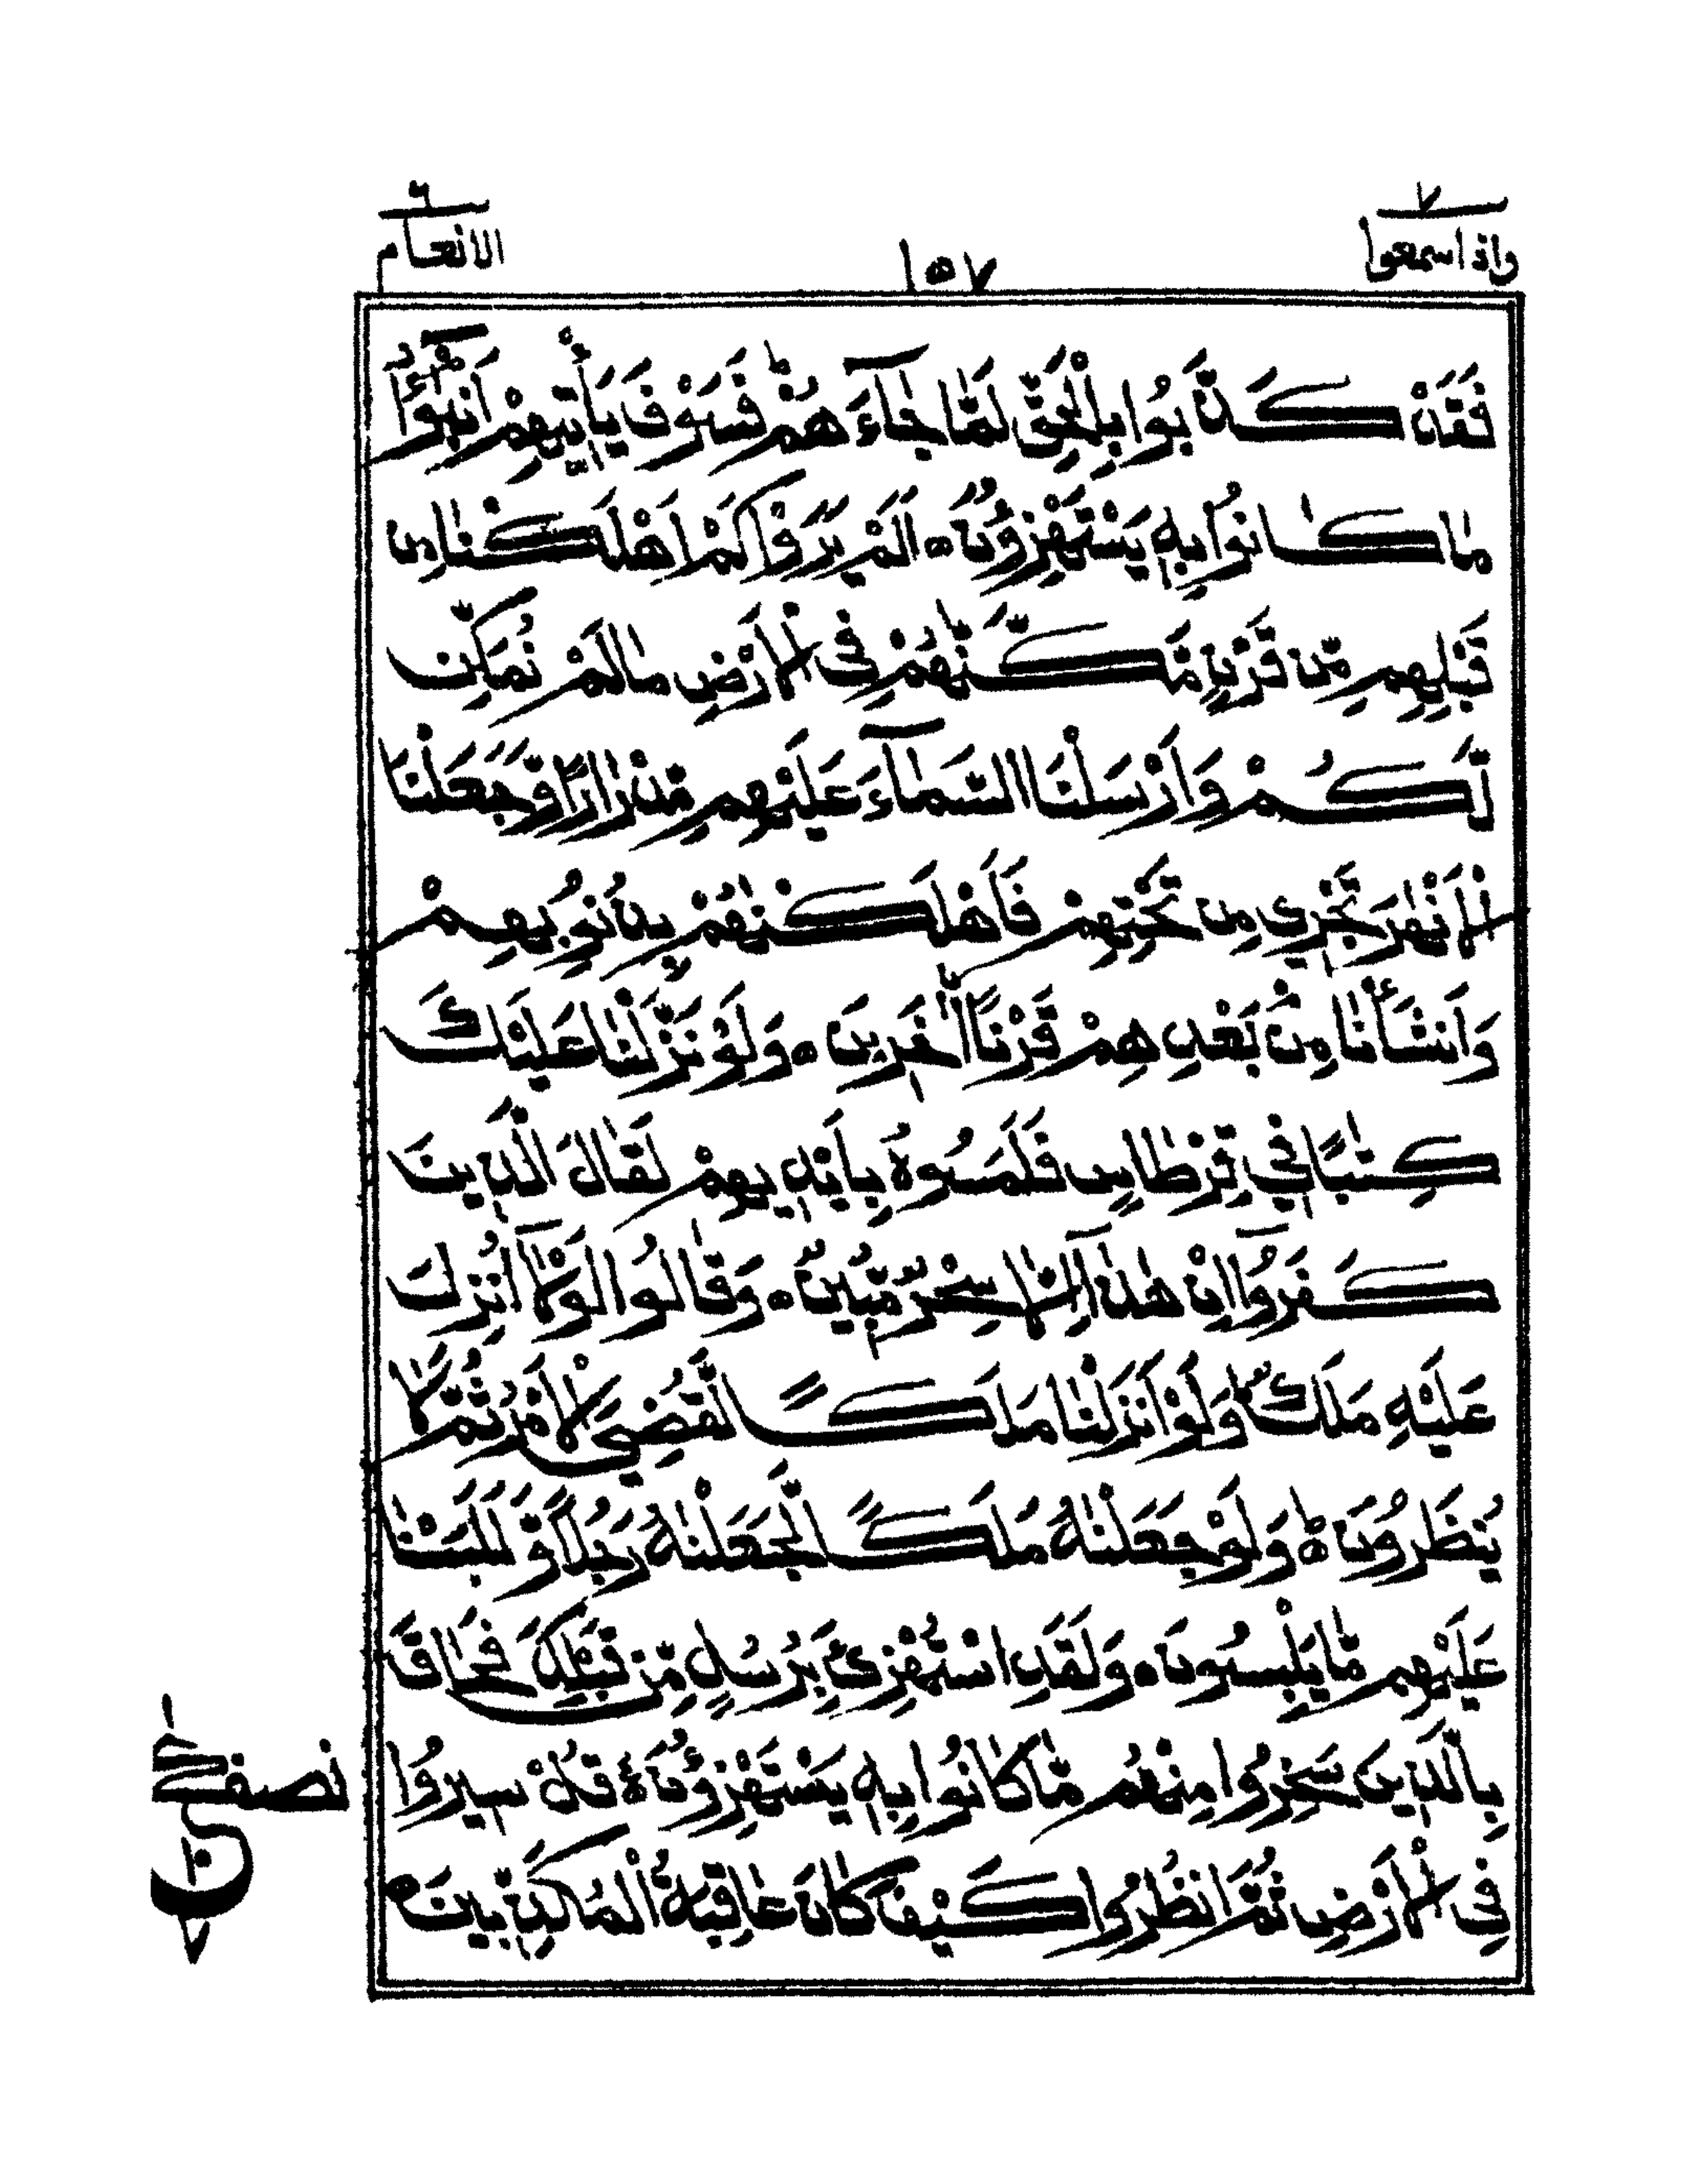 ٧
واذا سمعوا
١٥٧
٦
الانعام
فَقَدْ كَذَّبُوا بِالْحَقِّ لَمَّا جَآءَهُمْ ؕ فَسَوْفَ يَأْتِيْهِمْ اَنْۢبٰٓؤُا
مَا كَانُوْا بِهٖ يَسْتَهْزِءُوْنَ ۝ اَلَمْ يَرَوْا كَمْ اَهْلَكْنَا مِنْ
قَبْلِهِمْ مِّنْ قَرْنٍ مَّكَّنّٰهُمْ فِى الْاَرْضِ مَا لَمْ نُمَكِّنْ
لَّكُمْ وَاَرْسَلْنَا السَّمَآءَ عَلَيْهِمْ مِّدْرَارًا وَّجَعَلْنَا
الْاَنْهٰرَ تَجْرِيْ مِنْ تَحْتِهِمْ فَاَهْلَكْنٰهُمْ بِذُنُوْبِهِمْ
وَاَنْشَأْنَا مِنْۢ بَعْدِهِمْ قَرْنًا اٰخَرِيْنَ ۝ وَلَوْ نَزَّلْنَا عَلَيْكَ
كِتٰبًا فِيْ قِرْطَاسٍ فَلَمَسُوْهُ بِاَيْدِيْهِمْ لَقَالَ الَّذِيْنَ
كَفَرُوْٓا اِنْ هٰذَآ اِلَّا سِحْرٌ مُّبِيْنٌ ۝ وَقَالُوْا لَوْلَآ اُنْزِلَ
عَلَيْهِ مَلَكٌ ؕ وَلَوْ اَنْزَلْنَا مَلَكًا لَّقُضِيَ الْاَمْرُ ثُمَّ لَا
يُنْظَرُوْنَ ۝ وَلَوْ جَعَلْنٰهُ مَلَكًا لَّجَعَلْنٰهُ رَجُلًا وَّلَلَبَسْنَا
عَلَيْهِمْ مَّا يَلْبِسُوْنَ ۝ وَلَقَدِ اسْتُهْزِئَ بِرُسُلٍ مِّنْ قَبْلِكَ فَحَاقَ
بِالَّذِيْنَ سَخِرُوْا مِنْهُمْ مَّا كَانُوْا بِهٖ يَسْتَهْزِءُوْنَ ۝ قُلْ سِيْرُوْا
فِى الْاَرْضِ ثُمَّ انْظُرُوْا كَيْفَ كَانَ عَاقِبَةُ الْمُكَذِّبِيْنَ ۝
نصف